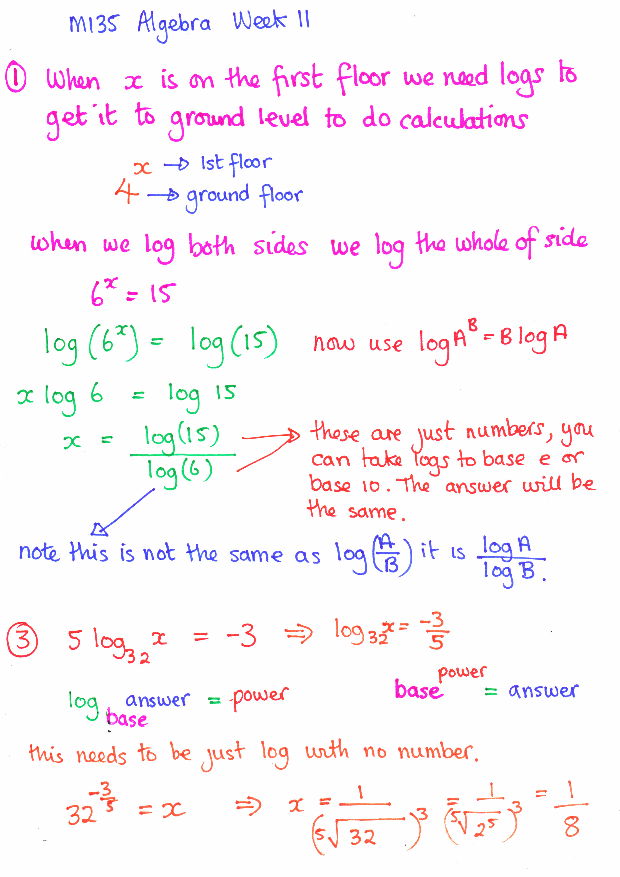 M135 Algebra Week 11
① When x is on the first floor we need logs to
get it to ground level to do calculations
x → 1st floor
4 → ground floor
when we log both sides we log the whole of side
6^x = 15
log (6^x) = log (15) now use log A^B = B log A
x log 6 = log 15
x = log(15) / log(6) → these are just numbers, you
can take logs to base e or
base 10. The answer will be
the same.
note this is not the same as log(A/B) it is log A / log B.
③ 5 log_32 x = -3 ⇒ log_32 x = -3/5
log_base answer = power base^power = answer
this needs to be just log with no number.
32^(-3/5) = x ⇒ x = 1/(⁵√32)^3 = 1/(⁵√2^5)^3 = 1/8